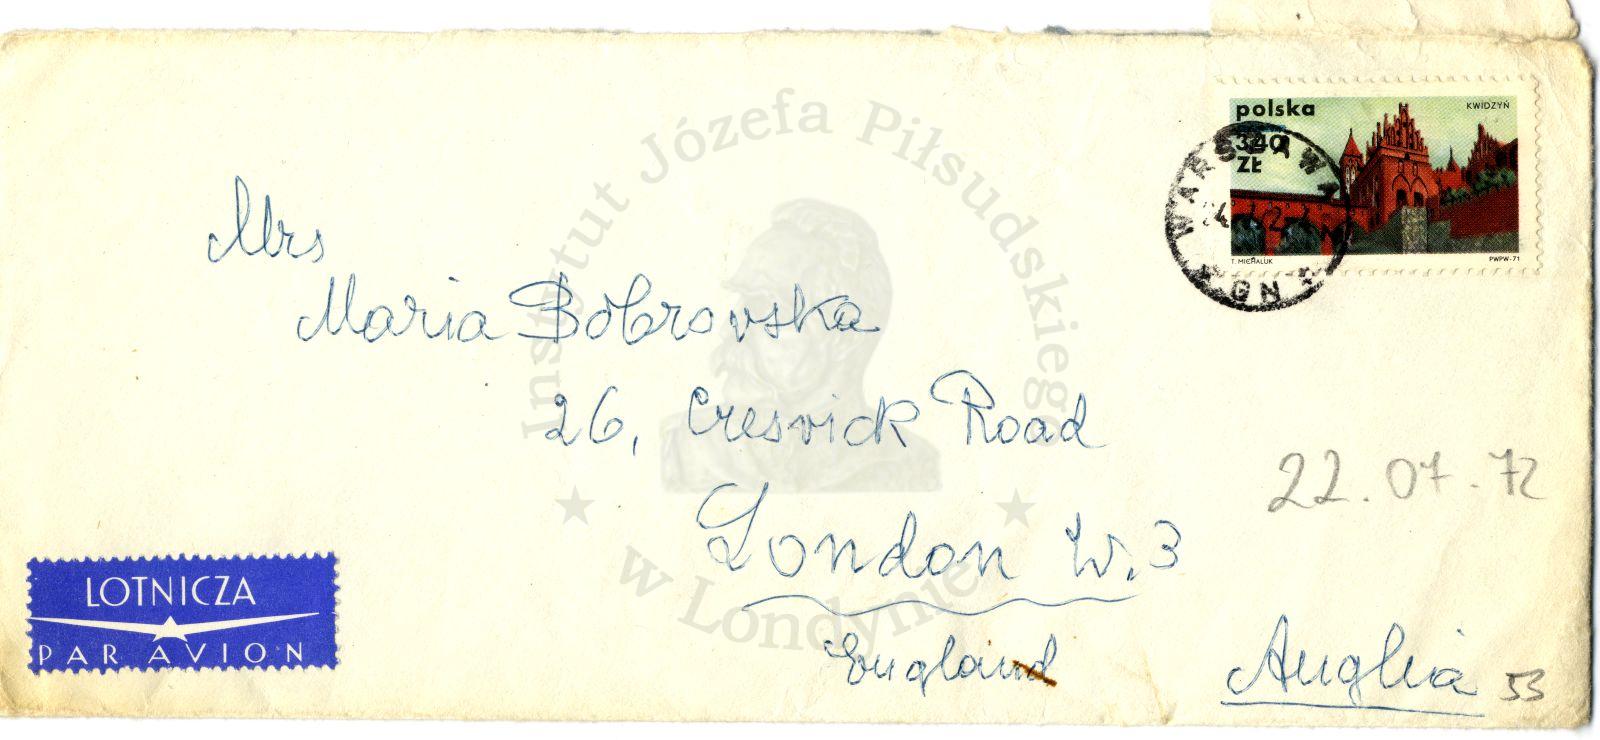 polska
KWIDZYŃ
340
ZŁ
T. MICHALUK
PWPW-71
WARSZAWA
Mrs
Maria Bobrovska
26, Cresvick Road
London W.3
England
Anglia
22.07.72
53
LOTNICZA
PAR AVION
Instytut Józefa Piłsudskiego
w Londynie